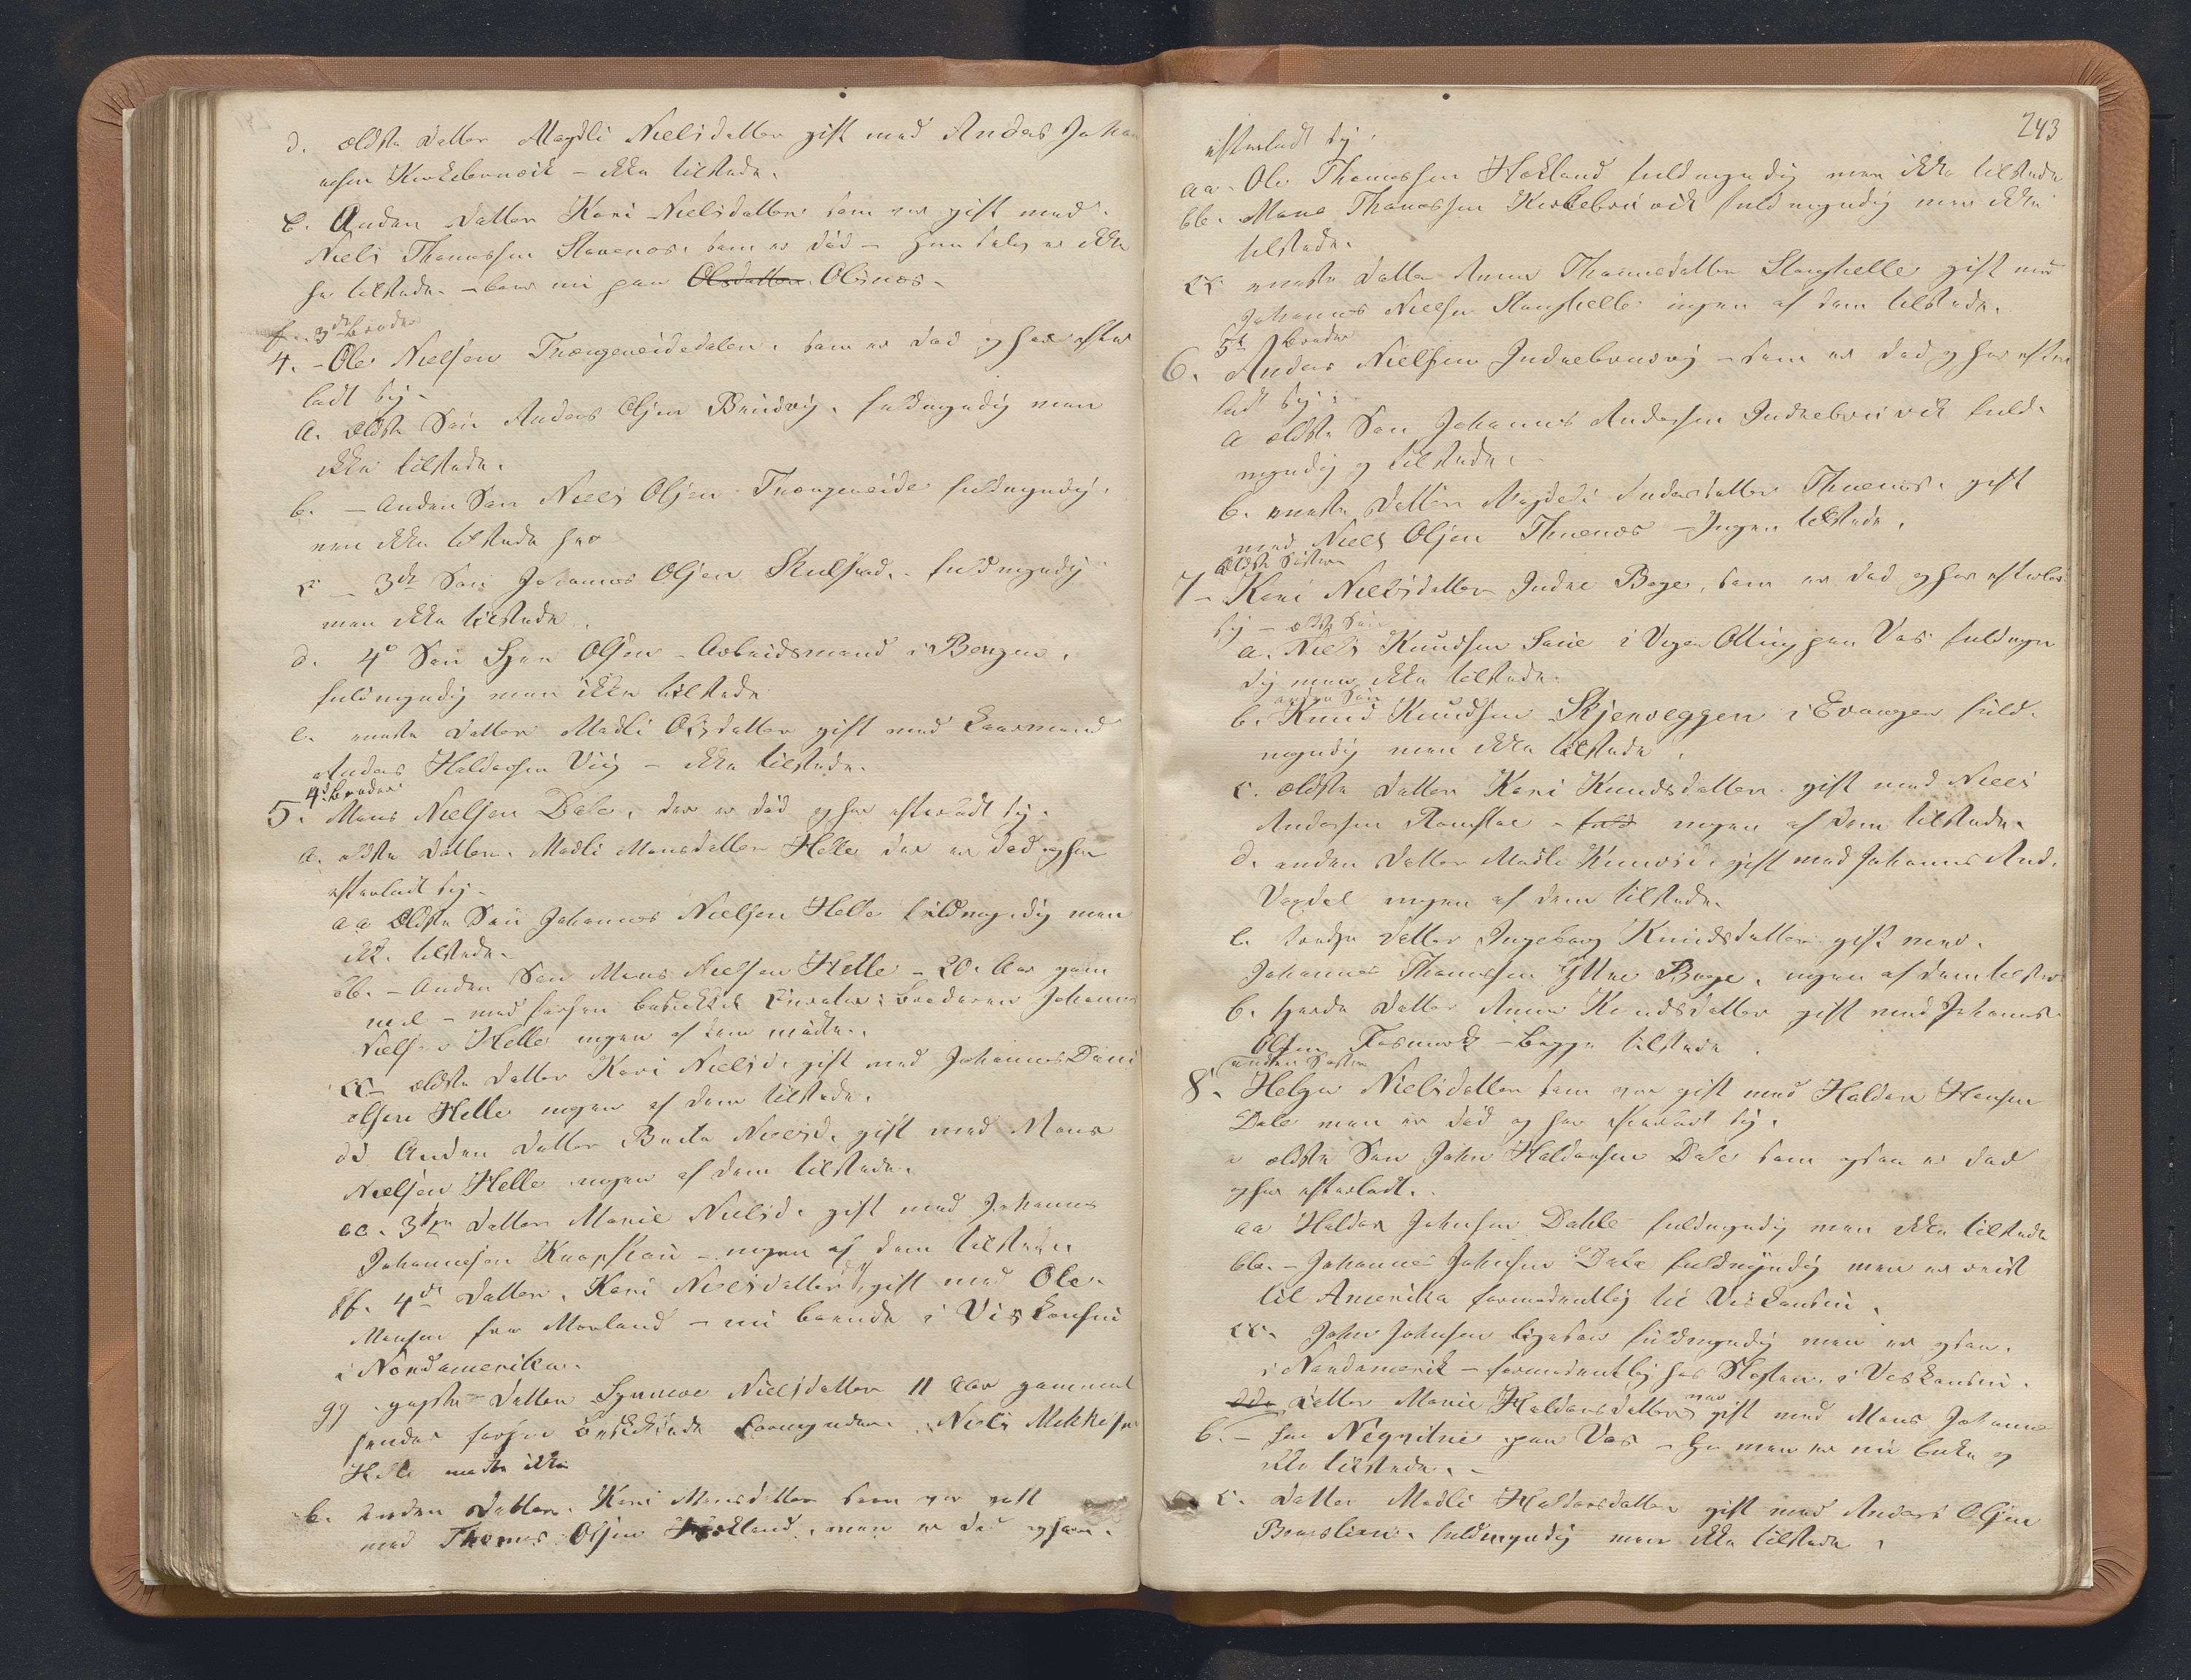 d. ældste Datter Magdli Nielsdatter gift med Anders Johan
nesen Kirkebruevik – ikke tilstede.
e. Anden Datter Kari Nielsdatter som var gift med
Niels Thomassen Stavenæs. som er død – hun selv er ikke
her tilstede. – boer nu paa Olsdatter Olsnæs.
f. 3de Broder
4. – Ole Nielsen Trængereidedalen, som er død og har efter
ladt sig –
a. Ældste Søn Anders Olsen Bruvig, fuldmyndig men
ikke tilstede.
b. – Anden Søn Niels Olsen Trængereide fuldmyndig,
men ikke tilstede her
c – 3de Søn Johannes Olsen Skulstad, fuldmyndig
men ikke tilstede.
d. 4de Søn Sjur Olsen – Arbeidsmand i Bergen,
fuldmyndig men ikke tilstede
e. eneste Datter Madli Olsdatter gift med Kaarmand
Anders Haldorsen Viig – ikke tilstede.
4de Broder
5. Mons Nielsen Dale, der er død og har efterladt sig.
a. ældste Datter. Madli Monsdatter Helle der er død og har
efterladt sig –
aa Ældste Søn Johannes Nielsen Helle fuldmyndig men
ikke tilstede.
bb. – Anden Søn Mons Nielsen Helle – 20 Aar gam
mel – med Curator: Broderen Johannes
Nielsen Helle ingen af dem mødte.
cc – ældste Datter Kari Nielsd. gift med Johannes Dani
elsen Helle ingen af dem tilstede.
dd Anden Datter Brita Nielsd. gift med Mons
Nielsen Helle ingen af dem tilstede.
ee. 3die Datter Marie Nielsd. gift med Johannes
Johannesen – ingen af dem tilstede
ff. 4de Datter, Kari Nielsdatter gift med Ole
Monsen fra Morland – nu boende i Viskonsin
i Nordamerika.
gg. yngste Datter Synneve Nielsdatter 11 Aar gammel
hendes Formynder Niels Mikkelsen
Helle mødte ikke
b. Anden Datter. Kari Monsdatter som var gift
med Thomas Olsen Hokland, men er død og har
243
efterladt sig:
aa. Ole Thomassen Hokland fuldmyndig men ikke tilstede
bb. Mons Thomassen Kirkebruvik fuldmyndig men ikke
tilstede.
cc eneste Datter Anna Thomasdatter Stanghelle gift med
Johannes Nielsen Stanghelle ingen af dem tilstede.
5te Broder
6. Anders Nielsen Indrebruvig – som er død og har efter
ladt sig:
a ældste Søn Johannes Andersen Indrebruvik fuld
myndig og tilstede.
b. eneste Datter Magdeli Andersdatter gift
med Niels Olsen – Ingen tilstede.
Ældste Søster
7 – Kari Nielsdatter Indre Boge, som er død og har efterladt
sig – ældste Søn
a. Niels Knudsen i paa Vos fuldmyn
dig men ikke tilstede.
anden Søn
b. Knud Knudsen Skjerveggen i Evanger fuld
myndig men ikke tilstede.
c. ældste Datter Kari Knudsdatter gift med Niels
Andersen – fuld ingen af dem tilstede.
d. anden Datter Madle Knudsd. gift med Johannes And.
Vaxdal ingen af dem tilstede.
e. tredje Datter Ingeborg Knudsdatter gift med
Johannes Thomassen Ytre Boge, ingen af dem tilstede
b. fjerde Datter Anna Knudsdatter gift med Johannes
Olsen Fosmark – begge tilstede.
anden Søster
8. Helga Nielsdatter som var gift med Haldor Hansen
Dale men er død og har efterladt sig.
a ældste Søn John Haldorsen Dale som ogsaa er død
og har efterladt.
aa Haldor Johnsen Dahle fuldmyndig men ikke tilstede
bb. – Johannes Johnsen Dale fuldmyndig men er reist
til Amerika formodentlig til Viskonsin.
cc. John Johnsen ligesaa fuldmyndig men er ogsaa
i Nordamerik – formodentlig hos i Viskonsin.
ddr Datter Marie Haldorsdatter var gift med Mons Johannes
b. – fra paa Vos – men er nu Enke og
ikke tilstede. –
c. Datter Madli Haldorsdatter gift med Anders Olsen
fuldmyndig men ikke tilstede.